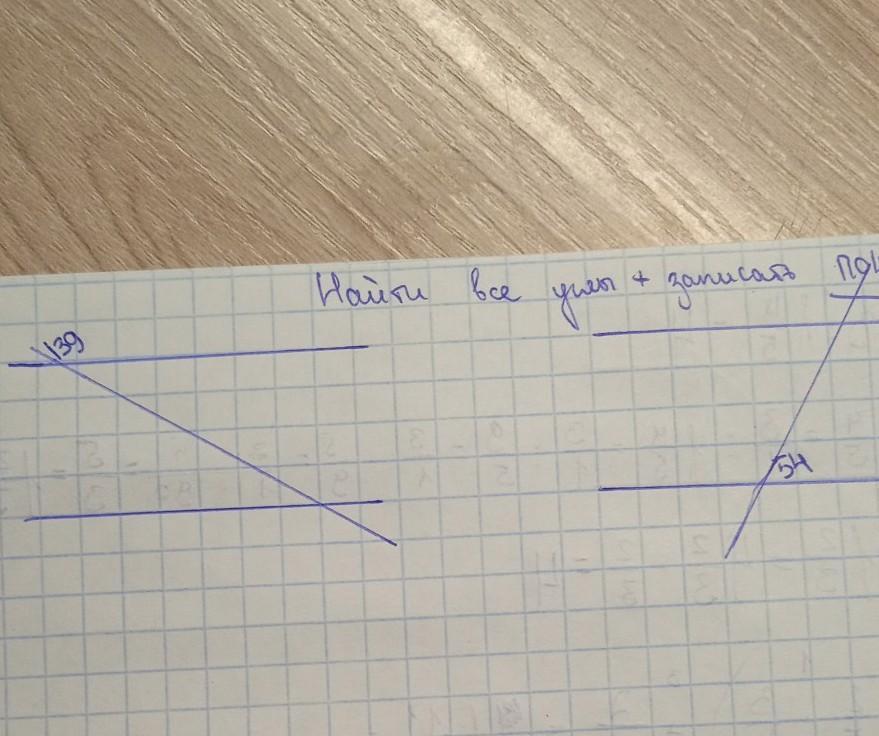 Найти все углы + записать
139
54